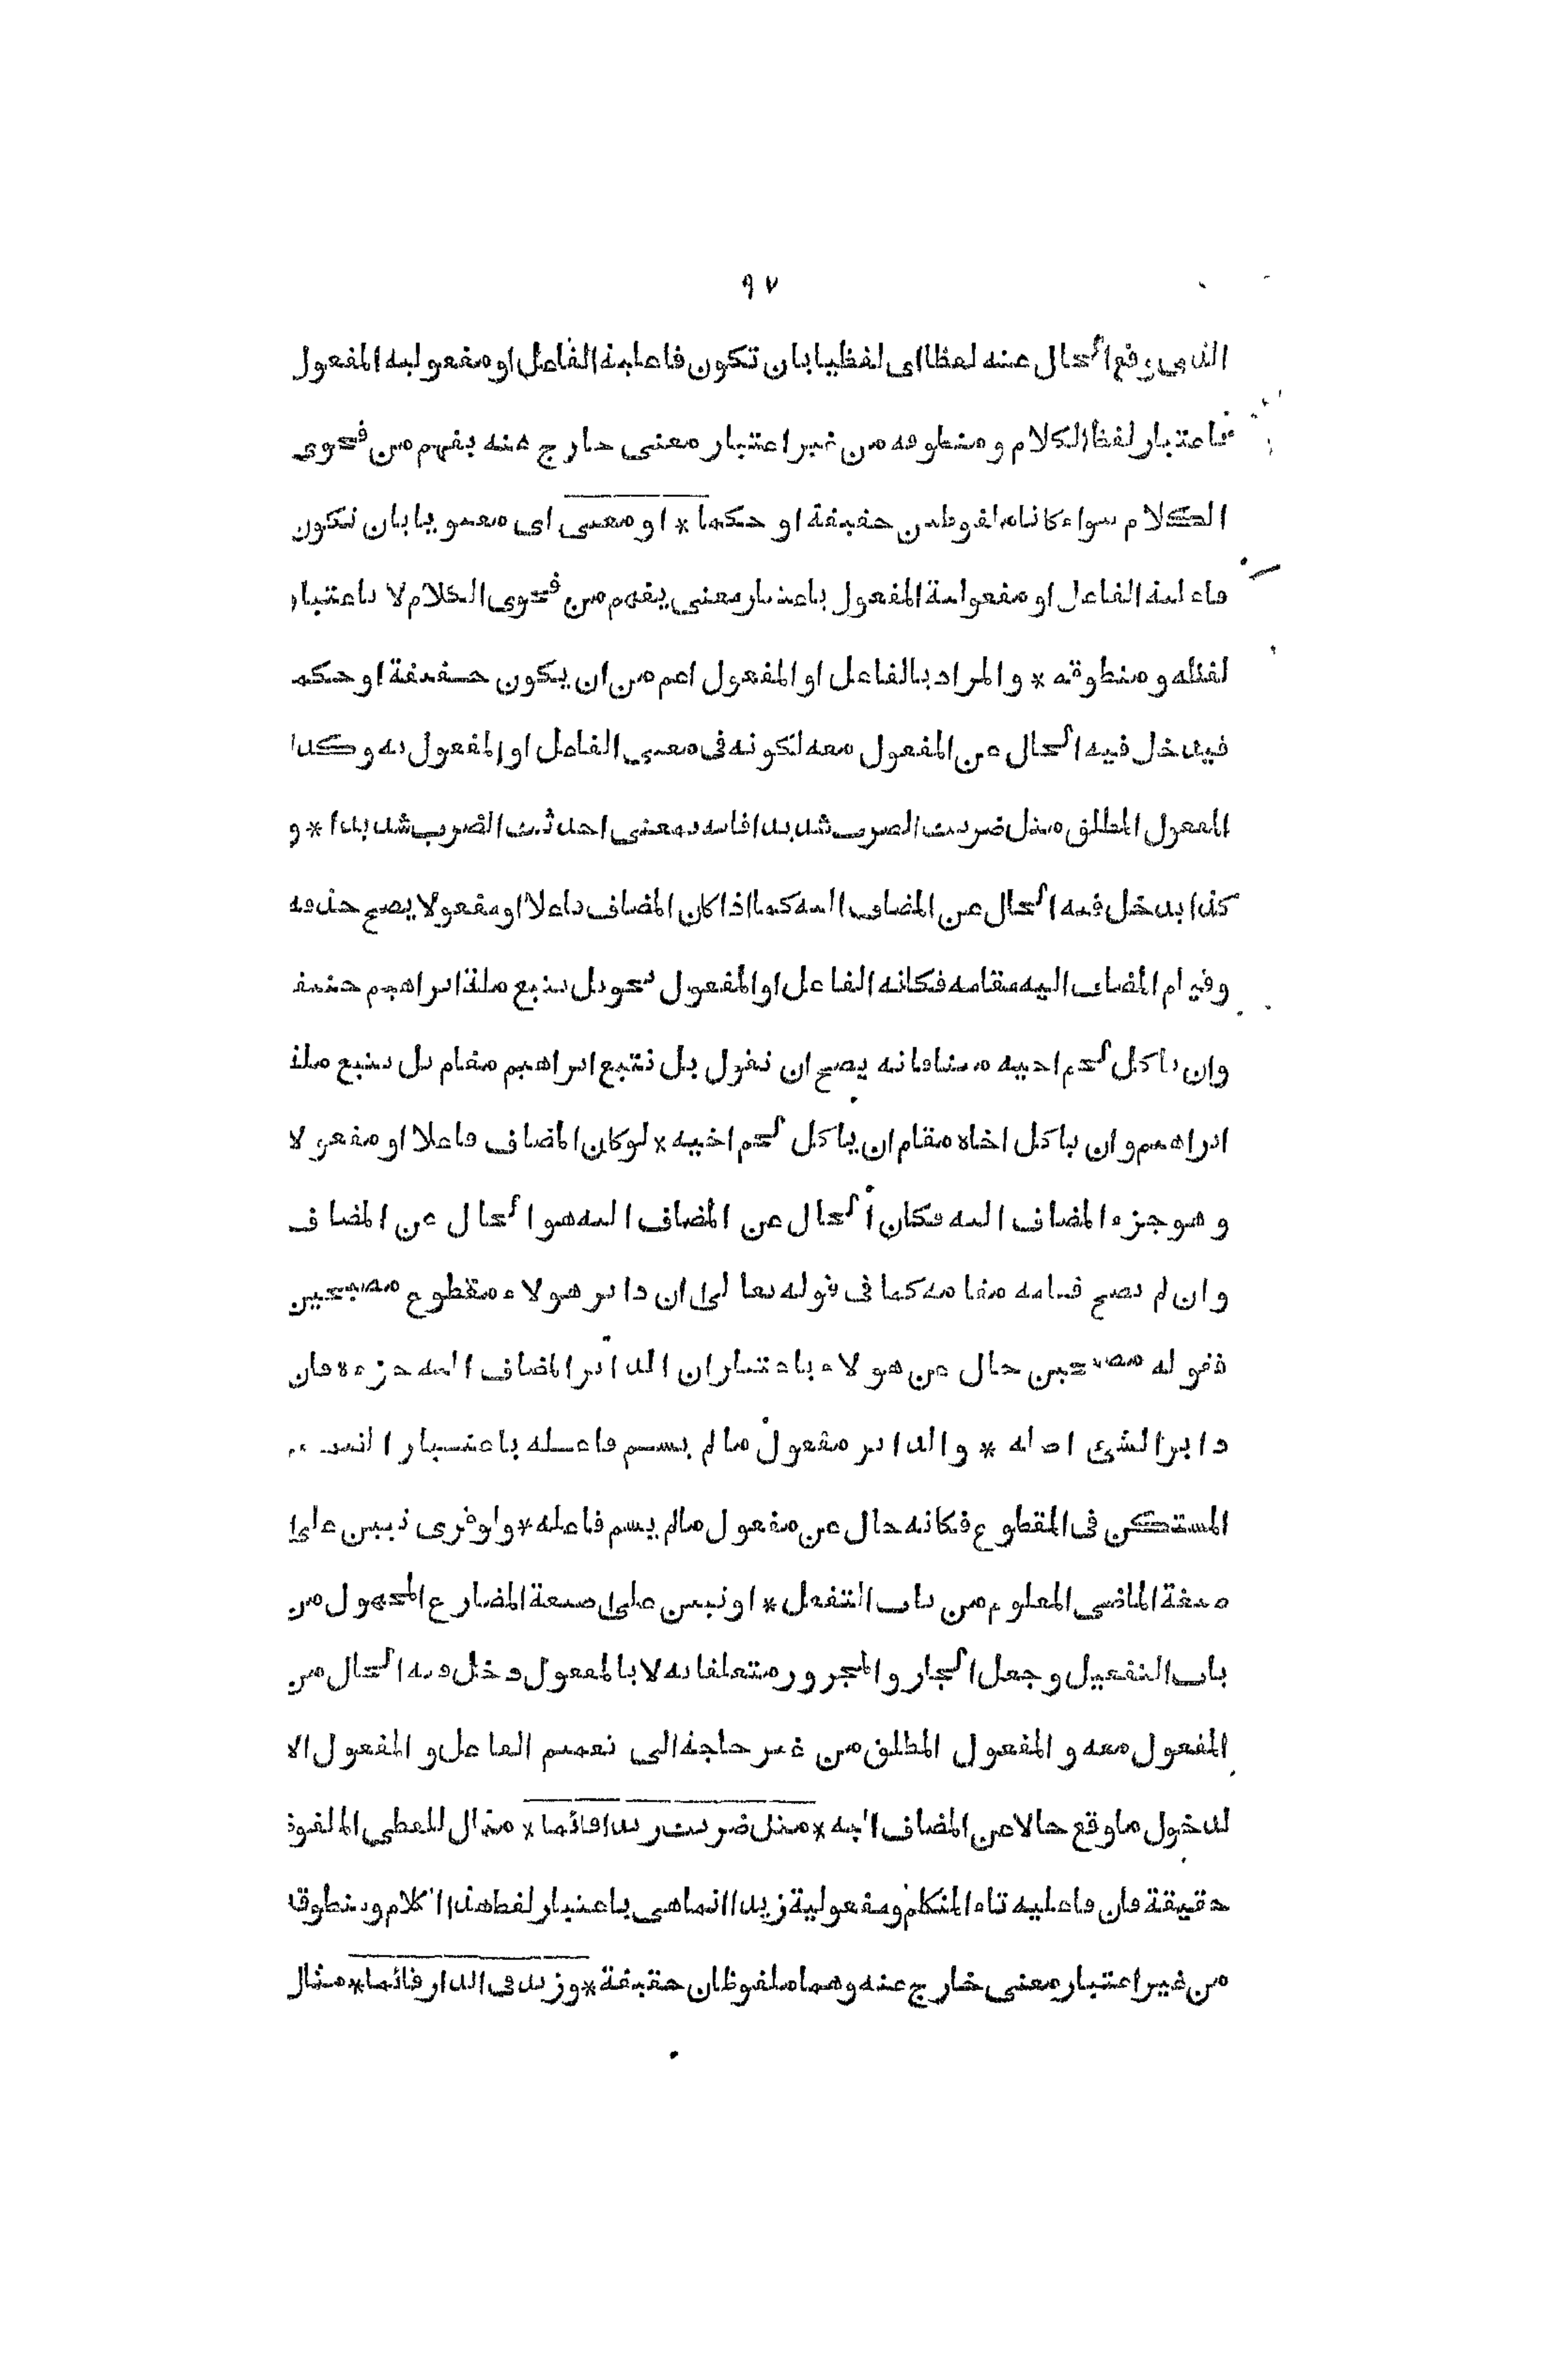 ٩٧
الذى وقع الحال عنه لفظا اى لفظيا بان تكون فاعلية الفاعل او مفعولية المفعول
باعتبار لفظ الكلام ومنطوقه من غير اعتبار معنى خارج عنه يفهم من فحوى
الكلام سواء كانا ملفوظين حقيقة او حكما * او معنى اى معنويا بان تكون
فاعلية الفاعل او مفعولية المفعول باعتبار معنى يفهم من فحوى الكلام لا باعتبار
لفظه ومنطوقه * والمراد بالفاعل او المفعول اعم من ان يكون حقيقة او حكما
فيدخل فيه الحال عن المفعول معه لكونه فى معنى الفاعل او المفعول به وكذا
المفعول المطلق مثل ضربت الضرب شديدا فانه بمعنى احدثت الضرب شديدا * و
كذا يدخل فيه الحال عن المضاف اليه كما اذا كان المضاف فاعلا او مفعولا يصح حذفه
وقيام المضاف اليه مقامه فكانه الفاعل او المفعول نحو بل نتبع ملة ابراهيم حنيفا
وان ياكل لحم اخيه ميتا فانه يصح ان نقول بل نتبع ابراهيم مقام بل نتبع ملة
ابراهيم وان ياكل اخاه مقام ان ياكل لحم اخيه * او كان المضاف فاعلا او مفعولا
وهو جزء المضاف اليه فكان الحال عن المضاف اليه هو الحال عن المضاف
وان لم يصح قيامه مقامه كما فى قوله تعالى ان دابر هولاء مقطوع مصبحين
فقوله مصبحين حال عن هولاء باعتبار ان الدابر المضاف اليه جزءه فان
دابر الشئ اصله * والدابر مفعول مالم يسم فاعله باعتبار
المستكن فى المقطوع فكانه حال عن مفعول مالم يسم فاعله * ولو قرى تبين على
صيغة الماضى المعلوم من باب التفعل * او نبين على صيغة المضارع المجهول من
باب التفعيل وجعل الجار والمجرور متعلقا به لا بالمفعول دخل فيه الحال من
المفعول معه والمفعول المطلق من غير حاجة الى تعميم الفاعل والمفعول الا
لدخول ما وقع حالا عن المضاف اليه * مثل ضربت زيدا قائما * مثال للفظى الملفوظ
حقيقة فان فاعلية تاء المتكلم ومفعولية زيدا انما هى باعتبار لفظ هذا الكلام ومنطوقه
من غير اعتبار معنى خارج عنه وهما ملفوظان حقيقة * وزيد فى الدار قائما * مثال